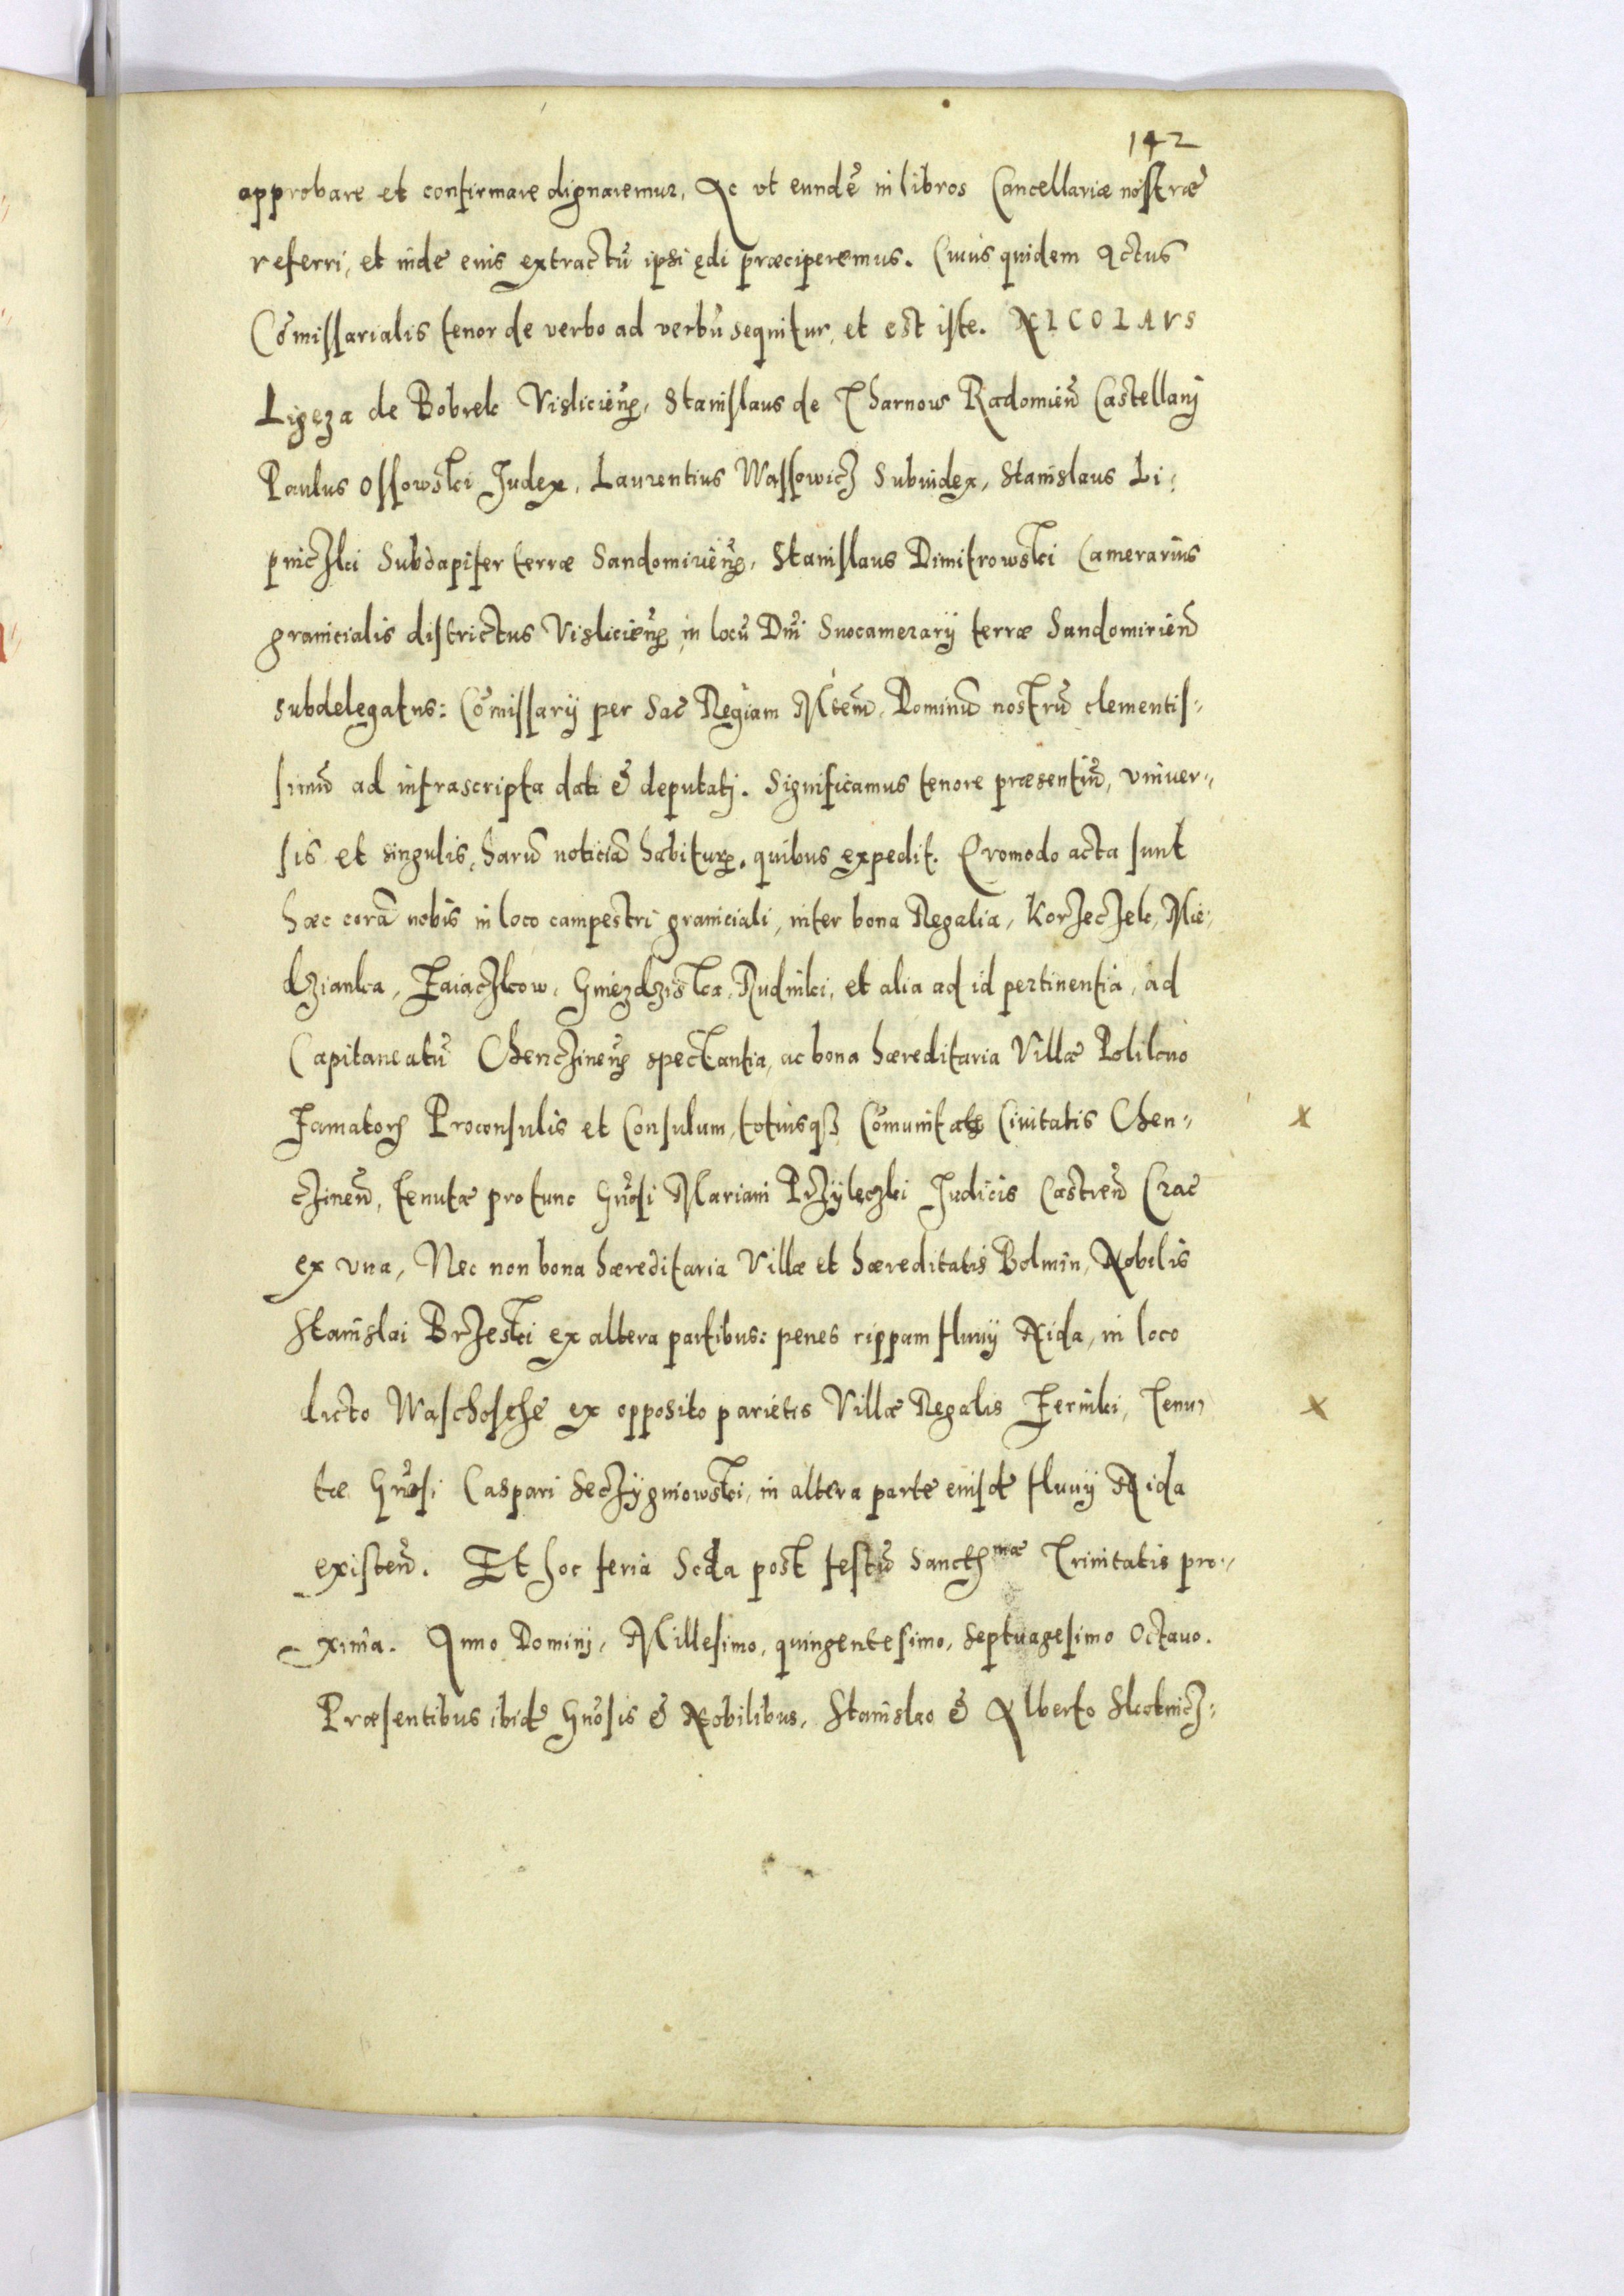 142
approbare et confirmare dignaremur, Ac vt eundē in libros Cancellariæ nostræ
referri, et inde eius extractū ipsi ędi præciperemus. Cuius quidem Actus
Cōmissarialis tenor de verbo ad verbū sequitur, et est iste. NICOLAVS
Ligęza de Bobrek Visliciēn̄, Stanislaus de Tharnow Radomieñ Castellanj
Paulus Ossowski Judex, Laurentius Wassowicz Subiudex, Stanislaus Li:
pniczki Subdapifer terræ Sandomirieñ, Stanislaus Dimitrowski Camerarius
granicialis districtus Vislicieñ, in locū Dñi Succamerarij terræ Sandomirieñ
subdelegatus: Cōmissarij per Sac̄ Regiam Mtem̄, Dominū nostrū clementis-
simū ad infrascripta dati & deputatj. Significamus tenore præsentiū, vniuer-
sis et singulis, harū noticiā habituris, quibus expedit. Quomodo acta sunt
hæc corā nobis in loco campestri graniciali, inter bona Regalia, Korzeczek, Mie-
dzianka, Zaiaczkow, Gniezdziska, Rudniki, et alia ad id pertinentia, ad
Capitaneatū Chenczineñ spectantia, ac bona hæreditaria Villæ Polikno
Famatorū Proconsulis et Consulum, totiusqȝ Cōmunitatis Ciuitatis Chen-
czineñ, tenutæ pro tunc Gñosi Mariani Przyłęczki Judicis Castreñ Crac̄
ex vna, Nec non bona hæreditaria Villæ et hæreditatis Bolmin, Nobilis
Stanislai Brzeski ex altera partibus: penes rippam fluuij Nida, in loco
dicto Waschosche ex opposito parietis Villæ Regalis Zerniki, Tenu-
tæ Gñosi Caspari Seczygniowski, in altera parte eiusdē fluuij Nida
existeñ. Et hoc feria Scđa post festū Sanctissmæ Trinitatis pro-
xima. Anno Dominj, Millesimo, quingentesimo, Septuagesimo Octauo.
Præsentibus ibidē Gñosis & Nobilibus, Stanislao & Alberto Skotnicz: